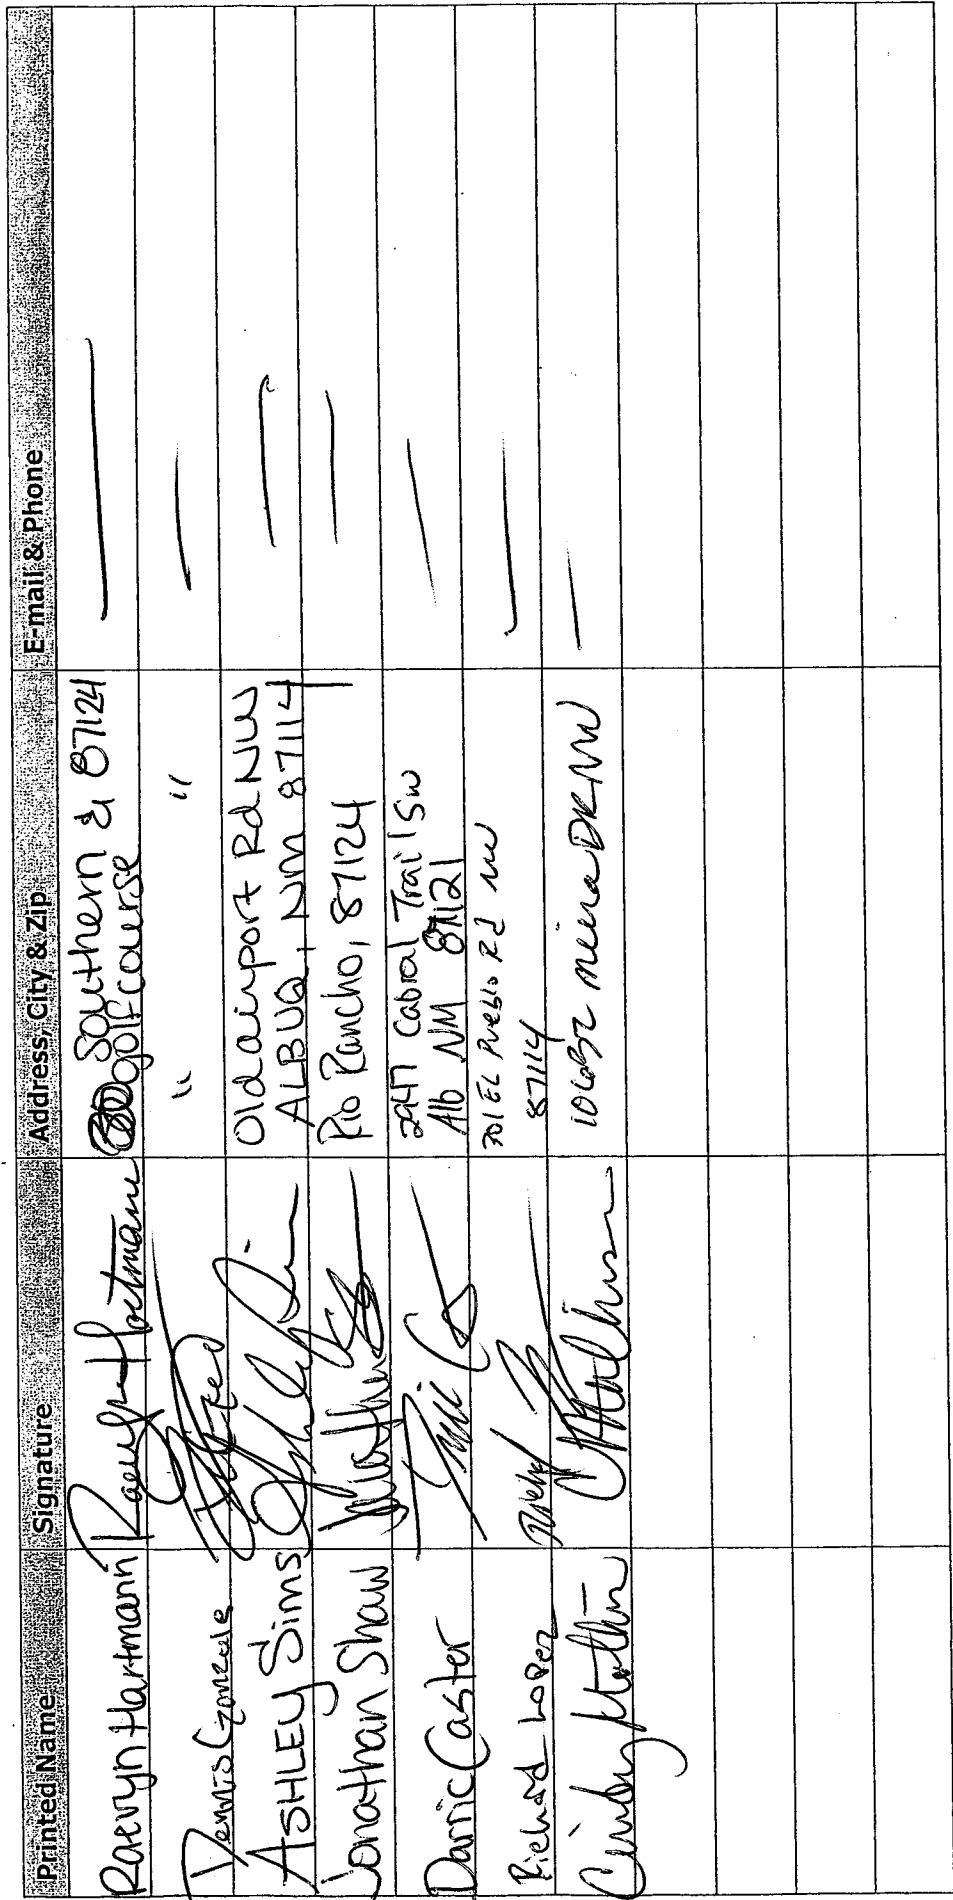 Printed Name Signature Address, City & Zip E-mail & Phone
Raevyn Hartmann Raevyn Hartmann Southern & 87124
golfcourse
Dennis Gonzale " "
ASHLEY Sims Old airport Rd NW
ALBUQ, NM 87114
Jonathan Shaw Rio Rancho, 87124
Darric Caster 2947 Cabral Trail SW
Alb NM 87121
Richard Lopez 701 EL Pueblo Rd NW
87114
DR NW